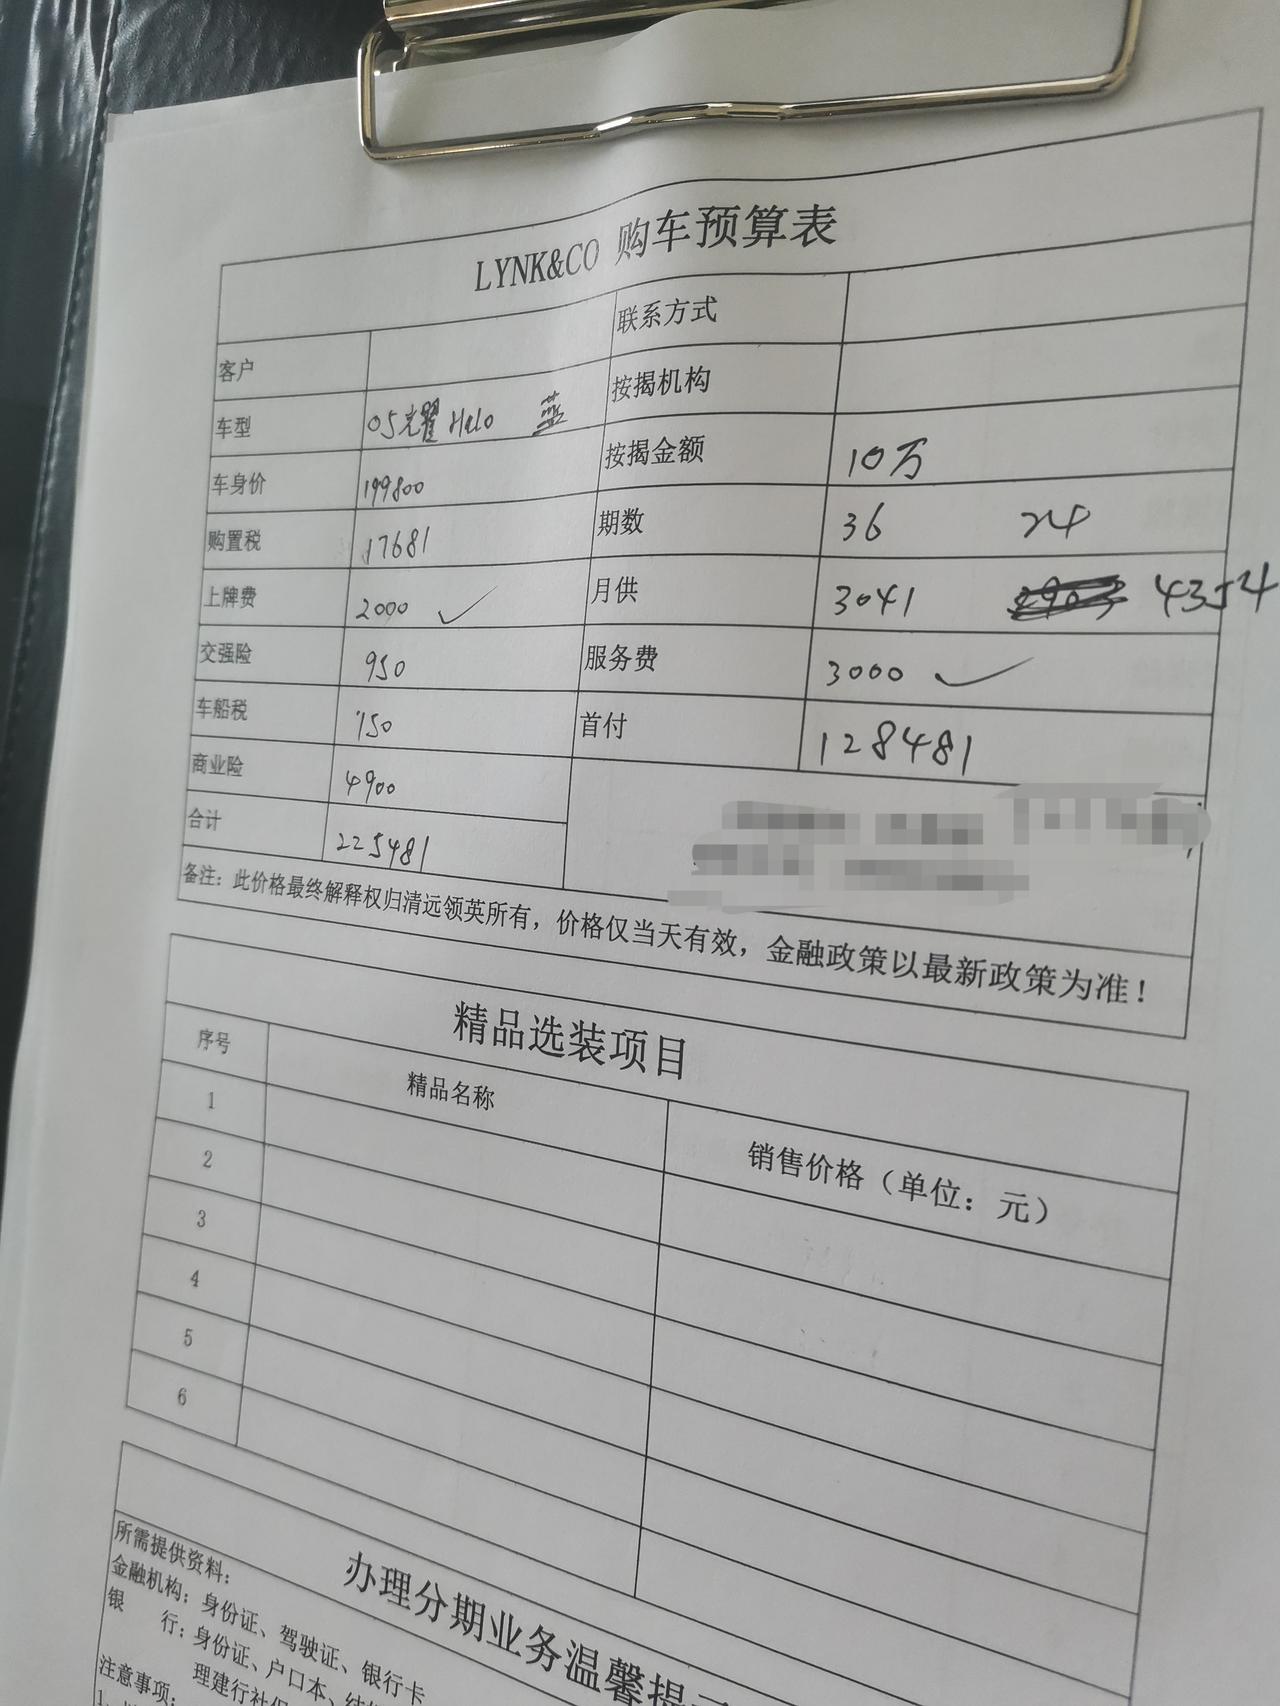 LYNK&CO 购车预算表
客户 联系方式
车型 05光耀 Halo 蓝 按揭机构
车身价 199800 按揭金额 10万
购置税 17681 期数 36 24
上牌费 2000 ✓ 月供 3041 4354
交强险 950 服务费 3000 ✓
车船税 150 首付 128481
商业险 4900
合计 225481
备注：此价格最终解释权归清远领英所有，价格仅当天有效，金融政策以最新政策为准！
精品选装项目
序号 精品名称 销售价格（单位：元）
1
2
3
4
5
6
办理分期业务温馨提
所需提供资料：
金融机构：身份证、驾驶证、银行卡
银 行：身份证、户口本、结
理建行社保
注意事项：